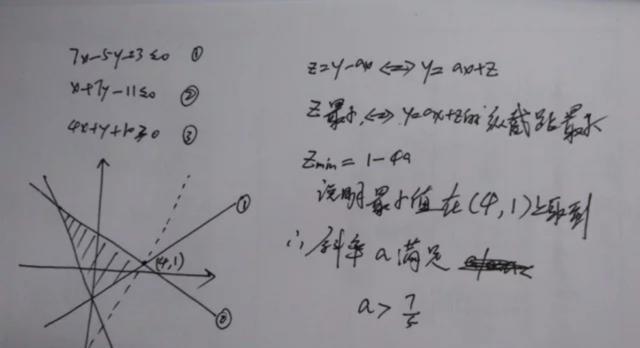 7x-5y-23≤0 ①
x+7y-11≤0 ②
4x+y+10≥0 ③
z=y-ax⟺y=ax+z
z最小⟺y=ax+z的纵截距最小
Zmin=1-4a
说明最小值在(4,1)上取到
∴斜率a满足
a>7/5
①
(4,1)
②